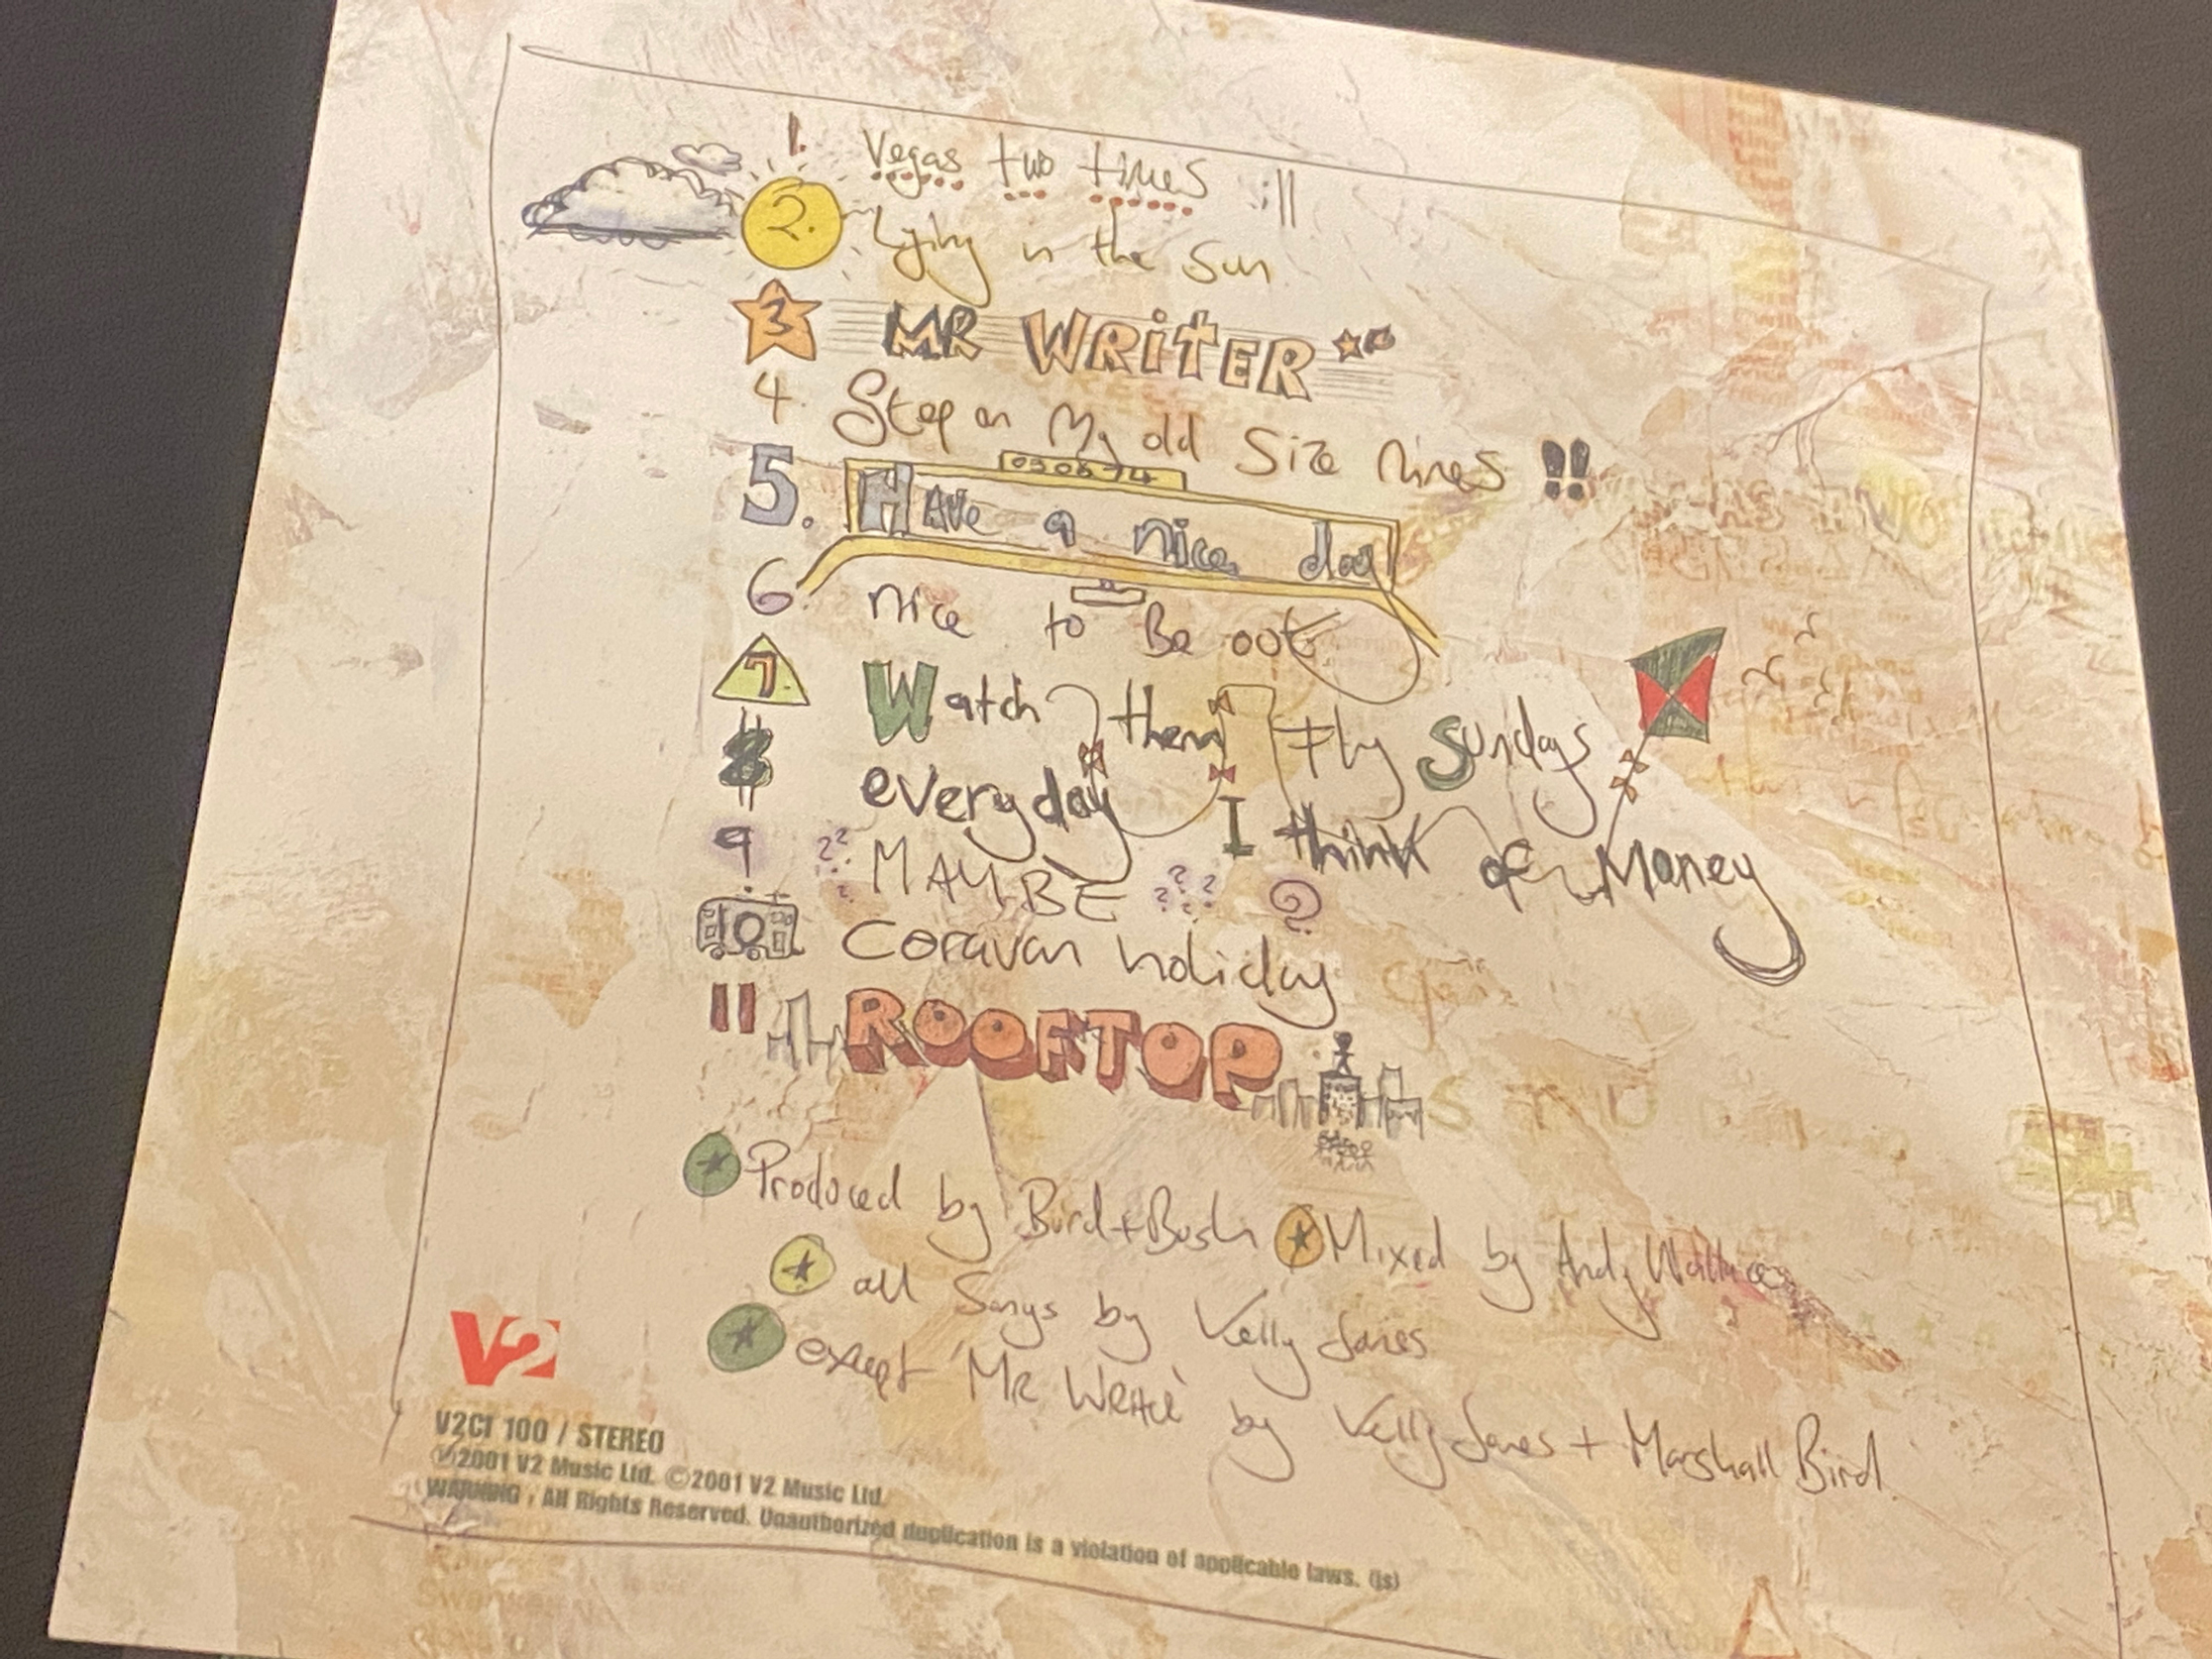 1. Vegas two times
2. Lying in the Sun
3 MR WRiTER
4. Step on My old Size Nines !!
030674
5. Have a nice day
6. nice to Be out
7 Watch them Fly Sundays
8 everyday I think of Money
9 ?? ? MAYBE ????? ?
10 Caravan holiday
11 ROOFTOP
Produced by Bird + Bush Mixed by Andy Wallace
all Songs by Kelly Jones
except 'Mr Writer' by Kelly Jones + Marshall Bird.
V2
V2CI 100 / STEREO
℗2001 V2 Music Ltd. ©2001 V2 Music Ltd.
WARNING : All Rights Reserved. Unauthorized duplication is a violation of applicable laws. (is)